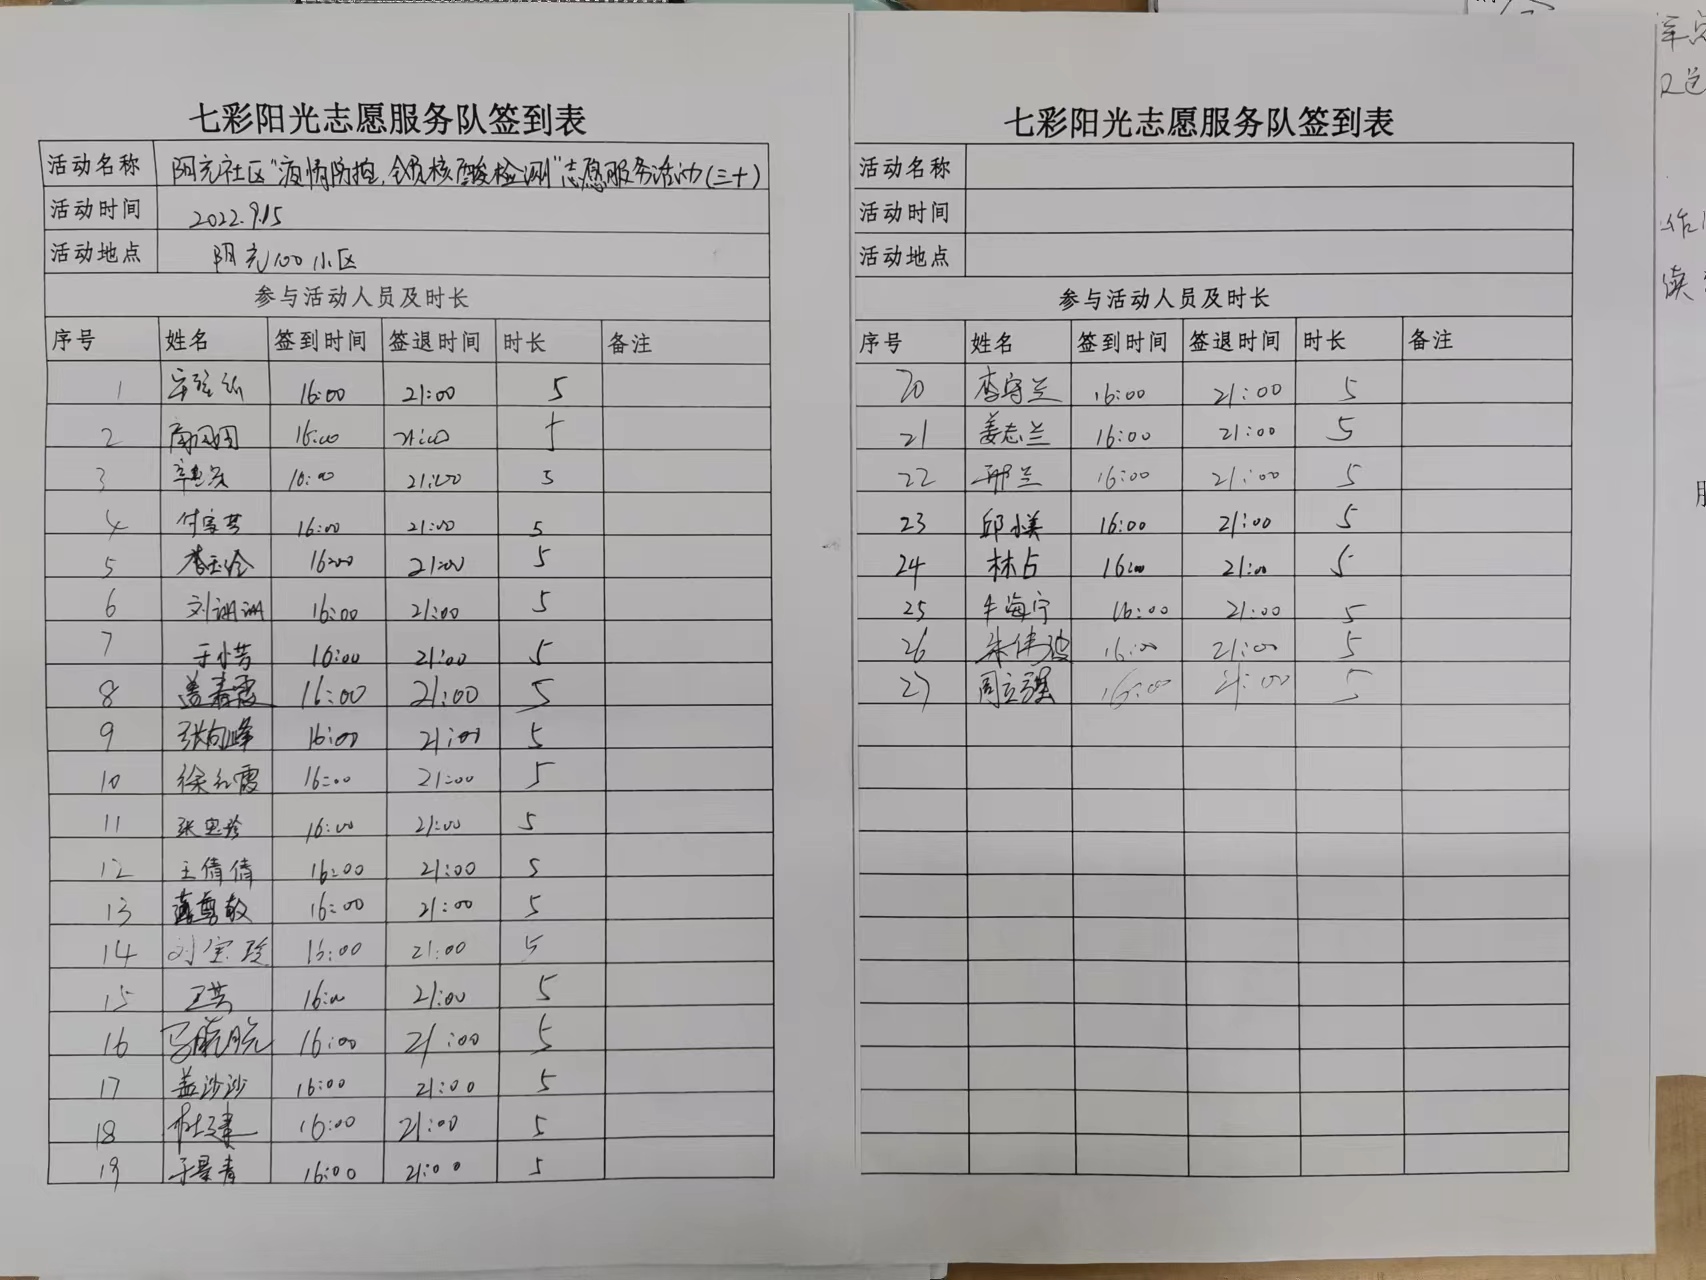 七彩阳光志愿服务队签到表
活动名称 阳光社区"疫情防控,全员核酸检测"志愿服务活动(三十)
活动时间 2022.9.15
活动地点 阳光100小区
参与活动人员及时长
序号 姓名 签到时间 签退时间 时长 备注
1 16:00 21:00 5
2 16:00 21:00 5
3 16:00 21:00 5
4 16:00 21:00 5
5 16:00 21:00 5
6 刘洲洲 16:00 21:00 5
7 于小芳 16:00 21:00 5
8 16:00 21:00 5
9 张向峰 16:00 21:00 5
10 徐红霞 16:00 21:00 5
11 16:00 21:00 5
12 王倩倩 16:00 21:00 5
13 16:00 21:00 5
14 刘宝珍 16:00 21:00 5
15 16:00 21:00 5
16 16:00 21:00 5
17 盖沙沙 16:00 21:00 5
18 杜建 16:00 21:00 5
19 16:00 21:00 5
七彩阳光志愿服务队签到表
活动名称
活动时间
活动地点
参与活动人员及时长
序号 姓名 签到时间 签退时间 时长 备注
20 李守兰 16:00 21:00 5
21 姜志兰 16:00 21:00 5
22 邢兰 16:00 21:00 5
23 邱美 16:00 21:00 5
24 林占 16:00 21:00 5
25 牛海宁 16:00 21:00 5
26 朱伟 16:00 21:00 5
27 周立强 16:00 21:00 5